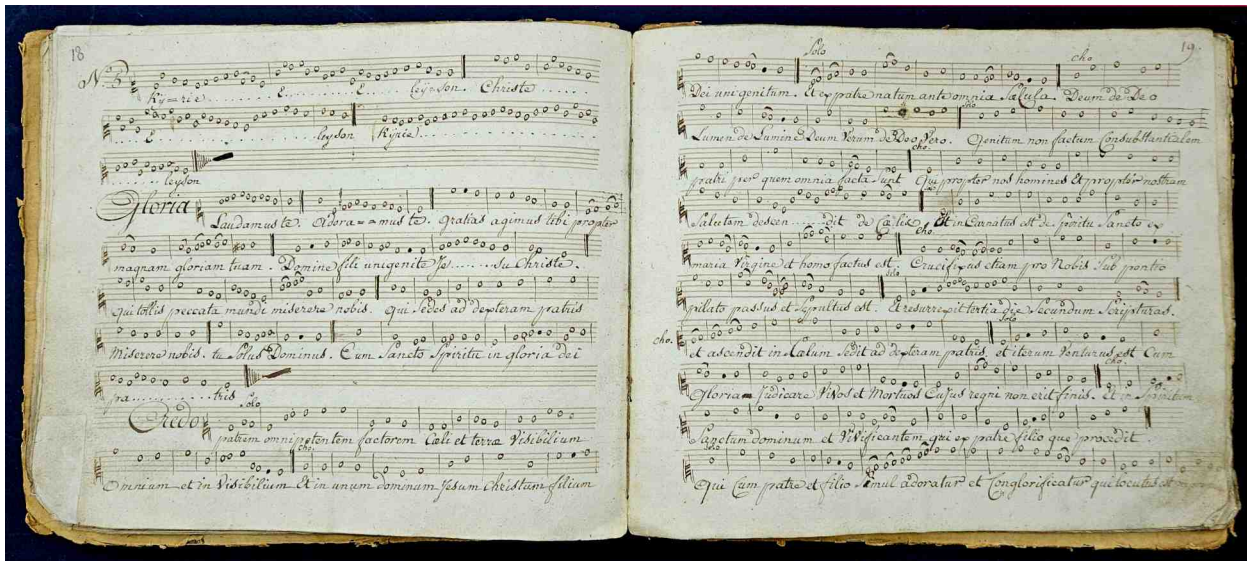 18
N. 3
Ky=rie ........ E ........ E ...... leyson. Christe ......
........ E ........ leyson Kyrie ........
........ leyson
Gloria Laudamus te. Adora==mus te. Gratias agimus tibi propter
magnam gloriam tuam. Domine fili unigenite Je ...... su Christe.
qui tollis peccata mundi miserere nobis. qui Sedes ad dexteram patris
Miserere nobis. tu Solus Dominus. Cum Sancto Spiritu in gloria dei
pa .......... tris
Solo
Credo patrem omnipotentem factorem Cæli et terræ Visibilium
cho.
Omnium et in Visibilium Et in unum dominum Jesum Christum filium
19.
Solo cho.
Dei unigenitum. Et ex patre natum ante omnia Sæcula. Deum de Deo
Solo
Lumen de Lumine Deum Verum de Deo Vero. Genitum non factum Consubstantialem
cho.
patri per quem omnia facta Sunt Qui propter nos homines Et propter nostram
Solo
Salutem descen ...... dit de Cælis. Et in Carnatus est de Spiritu Sancto ex
cho.
maria Virgine et homo factus est. Crucifixus etiam pro Nobis Sub pontio
Solo
pilato passus et Sepultus est. Et resurrexit tertia die Secundum Scripturas.
cho. Solo
et ascendit in Cælum Sedit ad dexteram patris. et iterum Venturus est Cum
cho.
Gloria Judicare Vivos et Mortuos Cujus regni non erit finis. Et in Spiritum
Sanctum dominum et Vivificantem qui ex patre filio que procedit.
Solo
Qui Cum patre et filio Simul adoratur et Conglorificatur qui locutus est